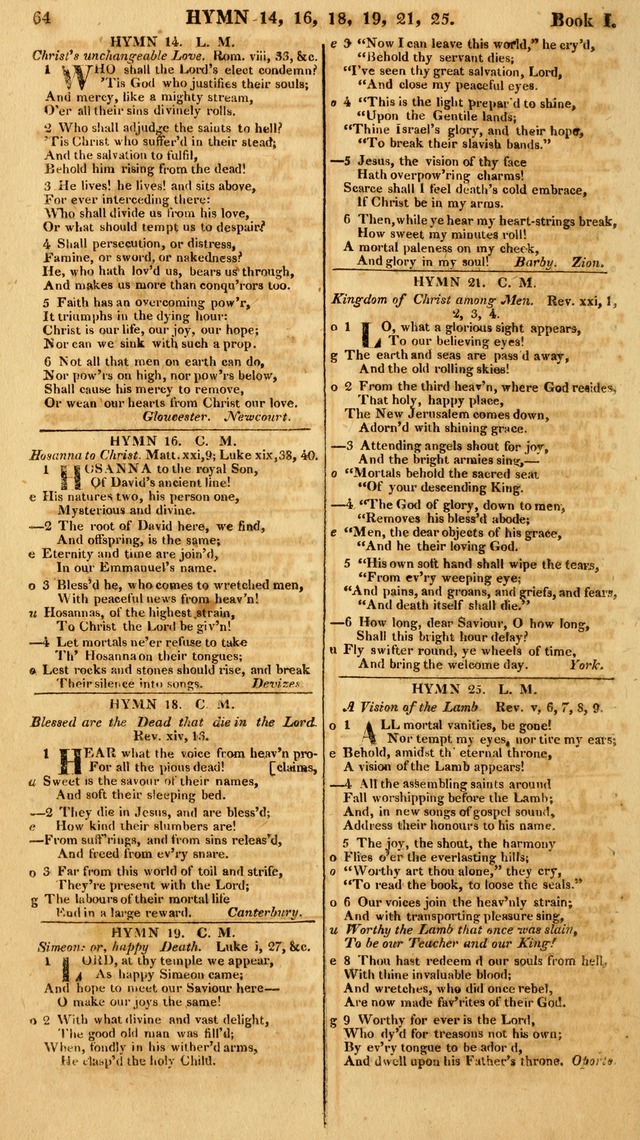 64
HYMN 14, 16, 18, 19, 21, 25.
Book I.
HYMN 14. L. M.
Christ's unchangeable Love. Rom. viii, 33, &c.
1 WHO shall the Lord's elect condemn?
'Tis God who justifies their souls;
And mercy, like a mighty stream,
O'er all their sins divinely rolls.
2 Who shall adjudge the saints to hell?
'Tis Christ who suffer'd in their stead;
And the salvation to fulfil,
Behold him rising from the dead!
3 He lives! he lives! and sits above,
For ever interceding there:
Who shall divide us from his love,
Or what should tempt us to despair?
4 Shall persecution, or distress,
Famine, or sword, or nakedness?
He, who hath lov'd us, bears us through,
And makes us more than conqu'rors too.
5 Faith has an overcoming pow'r,
It triumphs in the dying hour:
Christ is our life, our joy, our hope;
Nor can we sink with such a prop.
6 Not all that men on earth can do,
Nor pow'rs on high, nor pow'rs below,
Shall cause his mercy to remove,
Or wean our hearts from Christ our love.
Gloucester. Newcourt.
HYMN 16. C. M.
Hosanna to Christ. Matt. xxi,9; Luke xix,38, 40.
1 HOSANNA to the royal Son,
Of David's ancient line!
e His natures two, his person one,
Mysterious and divine.
—2 The root of David here, we find,
And offspring, is the same;
e Eternity and time are join'd,
In our Emmanuel's name.
o 3 Bless'd he, who comes to wretched men,
With peaceful news from heav'n!
u Hosannas, of the highest strain,
To Christ the Lord be giv'n!
—4 Let mortals ne'er refuse to take
Th' Hosanna on their tongues;
o Lest rocks and stones should rise, and break
Their silence into songs. Devizes.
HYMN 18. C. M.
Blessed are the Dead that die in the Lord.
Rev. xiv, 13.
1 HEAR what the voice from heav'n pro-
For all the pious dead! [claims,
u Sweet is the savour of their names,
And soft their sleeping bed.
—2 They die in Jesus, and are bless'd;
e How kind their slumbers are!
—From suff'rings, and from sins releas'd,
And freed from ev'ry snare.
o 3 Far from this world of toil and strife,
They're present with the Lord;
g The labours of their mortal life
End in a large reward. Canterbury.
HYMN 19. C. M.
Simeon: or, happy Death. Luke i, 27, &c.
1 LORD, at thy temple we appear,
As happy Simeon came;
And hope to meet our Saviour here—
O make our joys the same!
o 2 With what divine and vast delight,
The good old man was fill'd;
When, fondly in his wither'd arms,
He clasp'd the holy Child.
e 3 "Now I can leave this world," he cry'd,
"Behold thy servant dies;
"I've seen thy great salvation, Lord,
"And close my peaceful eyes.
o 4 "This is the light prepar'd to shine,
"Upon the Gentile lands;
"Thine Israel's glory, and their hope,
"To break their slavish bands."
—5 Jesus, the vision of thy face
Hath overpow'ring charms!
Scarce shall I feel death's cold embrace,
If Christ be in my arms.
6 Then, while ye hear my heart-strings break,
How sweet my minutes roll!
A mortal paleness on my cheek,
And glory in my soul! Barby. Zion.
HYMN 21. C. M.
Kingdom of Christ among Men. Rev. xxi, 1,
2, 3, 4.
o 1 LO, what a glorious sight appears,
To our believing eyes!
g The earth and seas are pass'd away,
And the old rolling skies!
o 2 From the third heav'n, where God resides,
That holy, happy place,
The New Jerusalem comes down,
Adorn'd with shining grace.
—3 Attending angels shout for joy,
And the bright armies sing,—
o "Mortals behold the sacred seat
"Of your descending King.
—4 "The God of glory, down to men,
"Removes his bless'd abode;
e "Men, the dear objects of his grace,
"And he their loving God.
5 "His own soft hand shall wipe the tears,
"From ev'ry weeping eye;
"And pains, and groans, and griefs, and fears,
"And death itself shall die."
—6 How long, dear Saviour, O how long,
Shall this bright hour delay?
u Fly swifter round, ye wheels of time,
And bring the welcome day. York.
HYMN 25. L. M.
A Vision of the Lamb Rev. v, 6, 7, 8, 9.
o 1 ALL mortal vanities, be gone!
Nor tempt my eyes, nor tire my ears;
e Behold, amidst th' eternal throne,
A vision of the Lamb appears!
—4 All the assembling saints around
Fall worshipping before the Lamb;
And, in new songs of gospel sound,
Address their honours to his name.
5 The joy, the shout, the harmony
o Flies o'er the everlasting hills;
o "Worthy art thou alone," they cry,
"To read the book, to loose the seals."
o 6 Our voices join the heav'nly strain;
And with transporting pleasure sing,
u Worthy the Lamb that once was slain,
To be our Teacher and our King!
e 8 Thou hast redeem'd our souls from hell,
With thine invaluable blood;
And wretches, who did once rebel,
Are now made fav'rites of their God.
g 9 Worthy for ever is the Lord,
Who dy'd for treasons not his own;
By ev'ry tongue to be ador'd,
And dwell upon his Father's throne. Oporto.